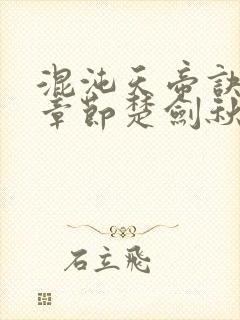 混沌天帝訣
章節楚劍秋
石立飛